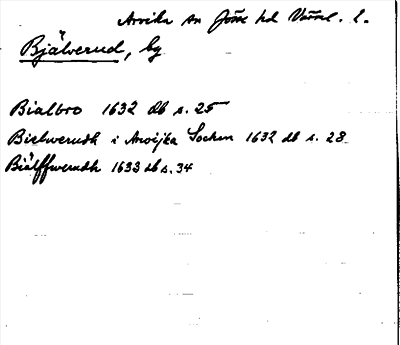 Arvika sn Jösse hd Värml. l.
Bjälverud, by
Bialbro 1632 db s. 25
Bielwerudh i Arwijka Sochen 1632 db s. 28
Biälffwerudh 1633 db s. 34